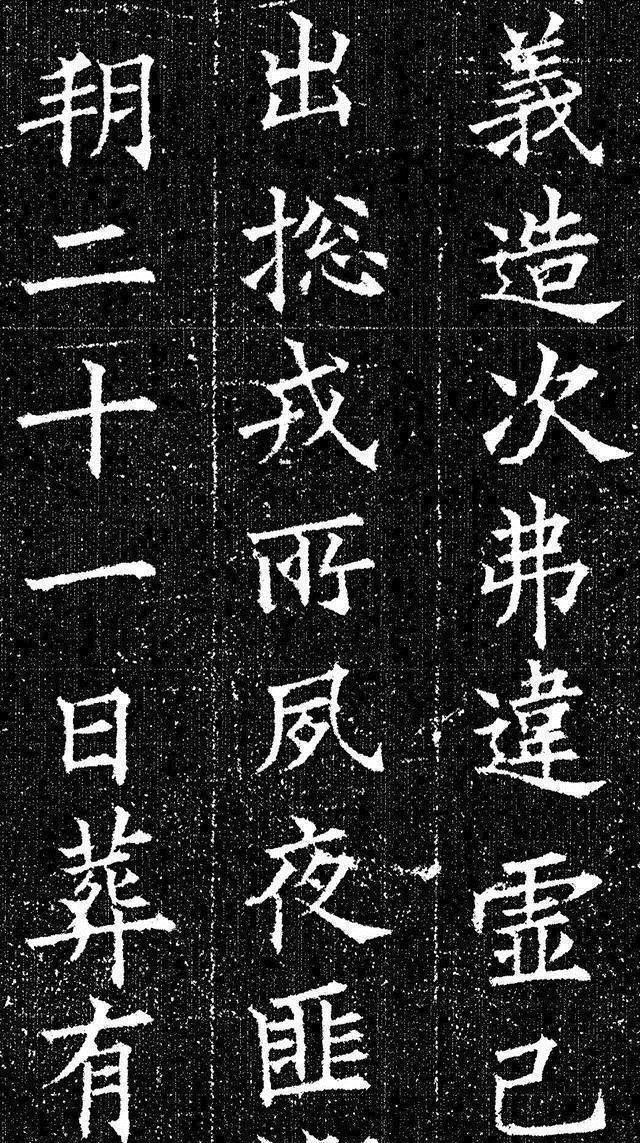 義造次弗違虛己
出総戎所夙夜匪
朔二十一日葬有